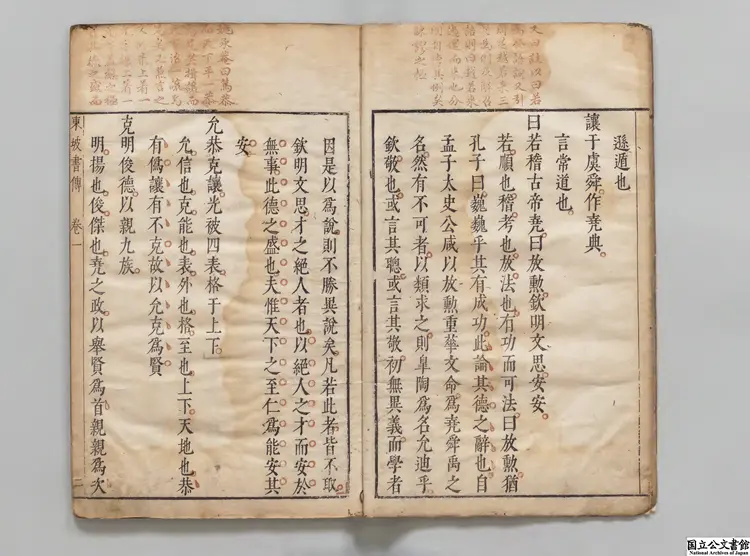 遜遁也
讓于虞舜作堯典
言常道也
曰若稽古帝堯曰放勲欽明文思安安
若順也稽考也放法也有功而可法曰放勲猶
孔子曰巍巍乎其有成功此論其德之辭也自
孟子太史公咸以放勲重華文命爲堯舜禹之
名然有不可者以類求之則臯陶爲名允迪乎
欽敬也或言其聰或言其敬初無異義而學者
因是以爲說則不勝異說矣凡若此者皆不取
欽明文思才之絕人者也以絕人之才而安於
無事此德之盛也夫惟天下之至仁爲能安其
安
允恭克讓光被四表格于上下
允信也克能也表外也格至也上下天地也恭
有僞讓有不克故以允克爲賢
克明俊德以親九族
明揚也俊傑也堯之政以舉賢爲首親親爲次
東坡書傳 卷一 二
国立公文書館
National Archives of Japan